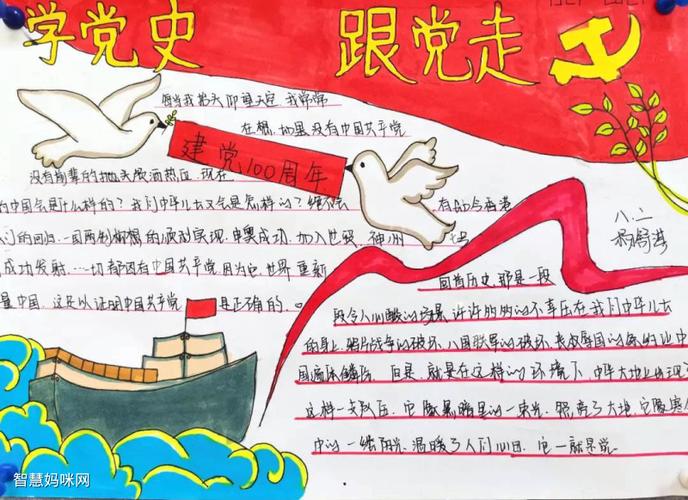 学党史 跟党走
每当我抬头仰望天空,我常常
在想,如果没有中国共产党
建党100周年
没有前辈的抛头颅洒热血,现在
的中国会是什么样的?我们中华儿女又会是怎样的?绝不会
有如今香港
的回归,一国两制构想的顺利实现,申奥成功,加入世贸,神州
成功发射,...一切都因有中国共产党,因为它,世界重新
量中国,这足以证明中国共产党 是正确的。
八.二
回首历史,那是一段
段令人心酸的场景,许许多多的不幸压在我们中华儿女
的身上,鸦片战争的破坏,八国联军的破坏,丧权辱国的条约让中
国遍体鳞伤。但是,就是在这样的环境下,中华大地上出现了
这样一支队伍,它像黑暗里的一束光,照亮了大地,它像寒冬
中的一缕阳光,温暖了人们心田,它一就是党。
智慧妈咪网